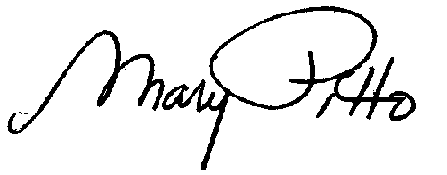 Mary Pitto